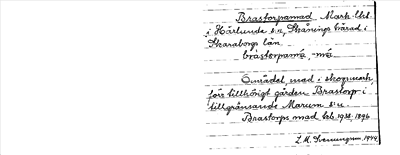 Brastorpamad Mark. bkl.
i Härlunda s:n, Skånings härad i
Skaraborgs län.
bråstorpamá -má
Område, mad i skogsmark,
förr tillhörigt gården Brastorp i
tillgränsande Marum s:n
Brastorps mad lsb. 1938. 1896
L. M. Svenungsson, 1949